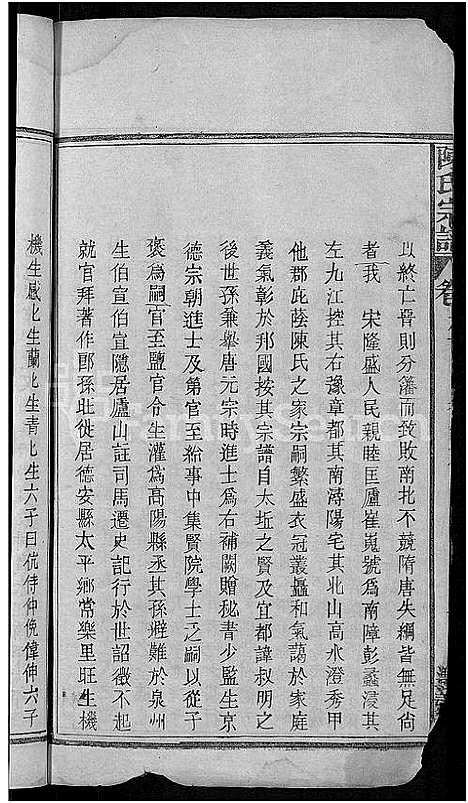 陳氏宗譜 卷
以終亡晉則分藩而致敗南北不競隋唐失綱皆無足尙
者我 宋隆盛人民親睦匡廬崔嵬號爲南障彭蠡浸其
左九江控其右豫章都其南潯陽宅其北山高水澄秀甲
他郡庇蔭陳氏之家宗嗣繁盛衣冠叢矗和氣藹於家庭
義氣彰於邦國按其宗譜自太坵之賢及宜都諱叔明之
後世孫兼舉唐元宗時進士爲右補闕贈秘青少監生京
德宗朝進士及第官至給事中集賢院學士之嗣以從子
褒爲嗣官至鹽官令生灌爲高陽縣丞其孫避難於泉州
生伯宣伯宣隱居廬山註司馬遷史記行於世詔徵不起
就官拜著作郎孫旺徙居德安縣太平鄉常樂里旺生機
機生感匕生蘭匕生青匕生六子曰伉侍仲俛偉伸六子